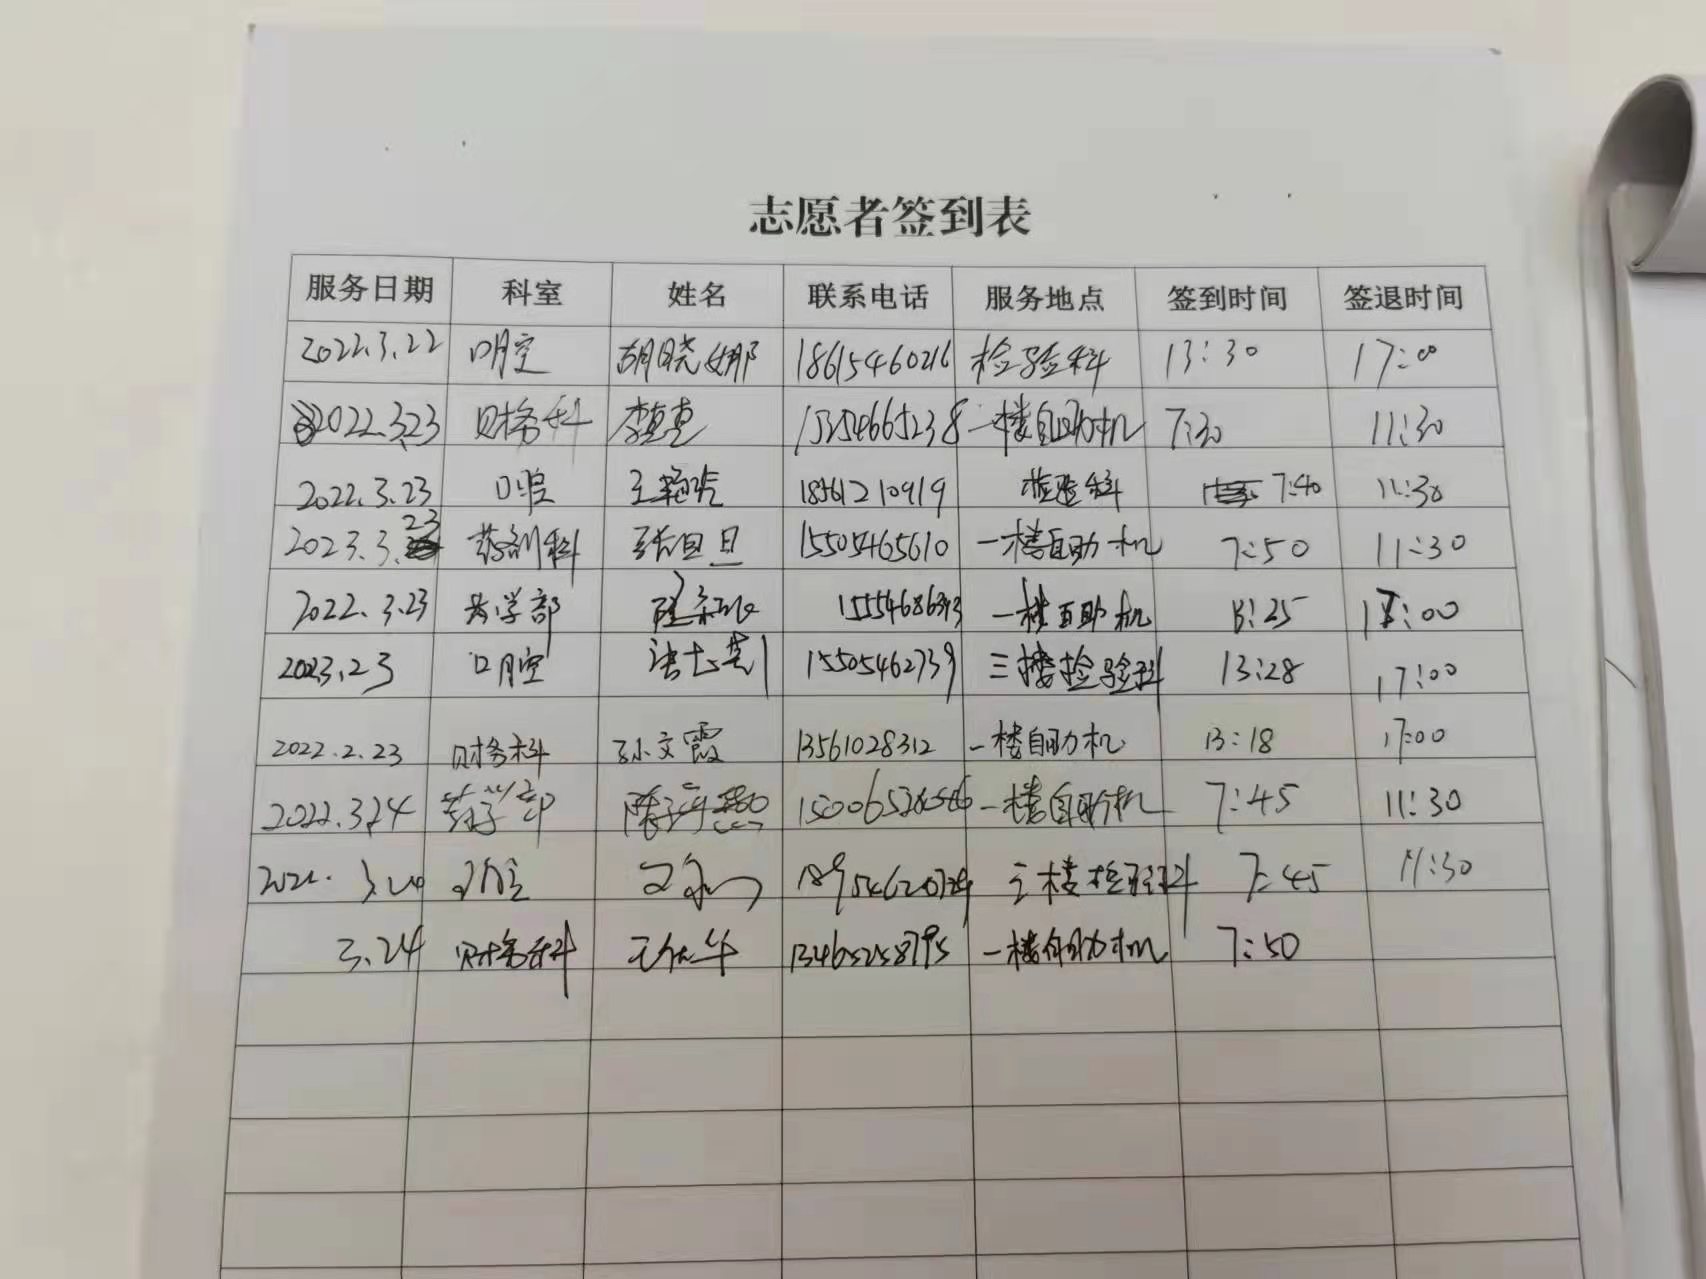 志愿者签到表
服务日期 科室 姓名 联系电话 服务地点 签到时间 签退时间
2022.3.22 口腔 胡晓娜 18615460216 检验科 13:30 17:00
2022.3.23 财务科 李真真 15254665238 一楼自助机 7:30 11:30
2022.3.23 口腔 18561210919 检验科 7:40 11:30
2023.3.23 药剂科 张旦旦 15505465610 一楼自助机 7:50 11:30
2022.3.23 药学部 一楼自助机 13:25 17:00
2023.23 口腔 15505462739 三楼检验科 13:28 17:00
2022.2.23 财务科 孙文霞 13561028312 一楼自助机 13:18 17:00
2022.3.24 药学部 一楼自助机 7:45 11:30
3.24 口腔 三楼检验科 7:45 11:30
3.24 财务科 13465258795 一楼自助机 7:50